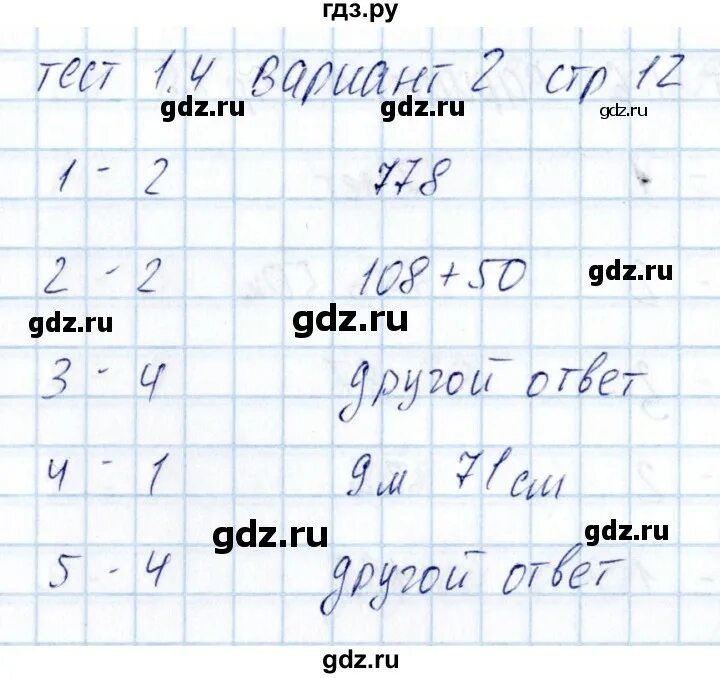 гдз.ру
тест 1.4 вариант 2 стр 12
gdz.ru gdz.ru gdz.ru
1 - 2 778
2 - 2 108 + 50 gdz.ru
gdz.ru gdz.ru
3 - 4 другой ответ
4 - 1 9м 71 см
gdz.ru gdz.ru
5 - 4 другой ответ
gdz.ru